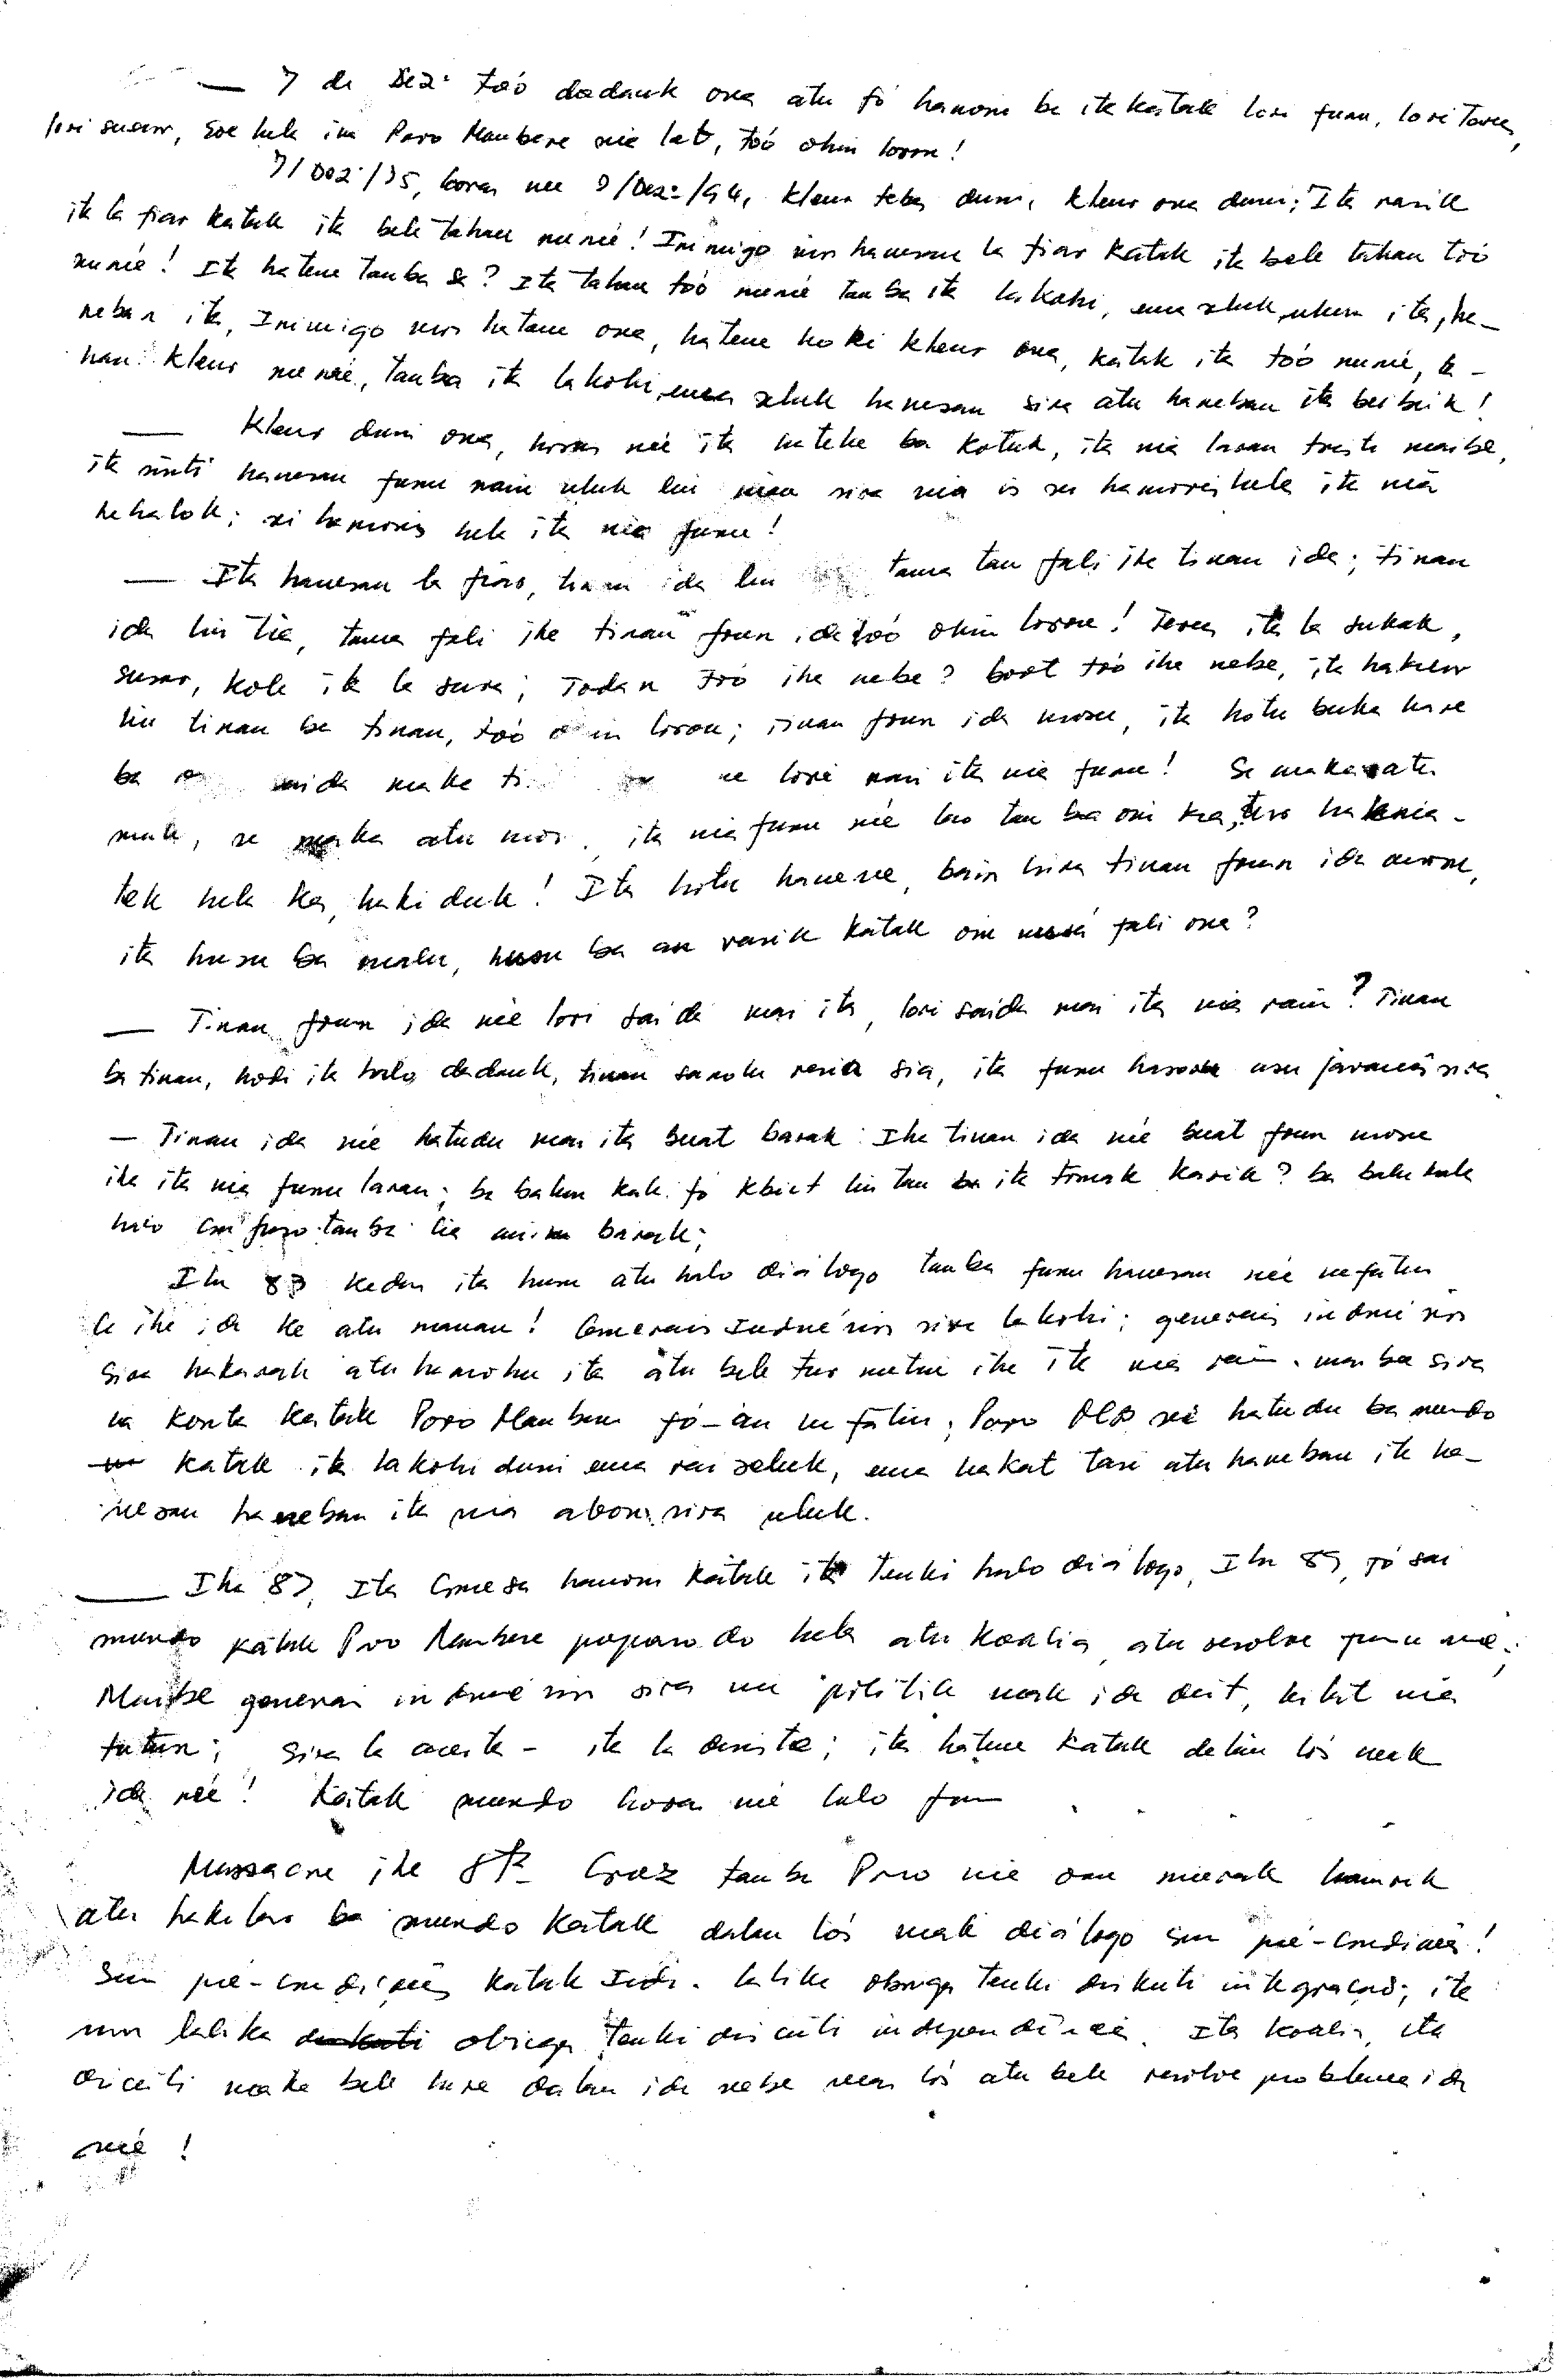 — 7 de Dez: tóo dadauk ona atu fó hanoin ba ita katak lori funu, lori terus,
lori susar, soe hela ina Povo Maubere nia lat, tóo ohin loron!
7/Dez:/75, horas né 7/Dez:/94, kleur tebes duni, kleur ona duni; Ita rasik
ita la fiar katak ita bele tahan nuné! Inimigo mos hanesan la fiar katak ita bele tahan tóo
nuné! Ita hatene tanba sá? Ita tahan tóo nuné tanba ita lakohi, ema seluk ukun ita, ha-
neban ita, Inimigo mos hatene ona, hatene hori kleur ona, katak ita tóo nuné, ta-
han kleur nuné, tanba ita lakohi, ema seluk hanesan sira atu haneban ita beibeik!
— Kleur duni ona, horas né ita hateke ba kotuk, ita nia laran triste maibe,
ita sinti hanesan funu nain uluk liu nian sira nia is sei hamoris hela ita nia
hahalok; sei hamoris hela ita nia funu!
— Ita hanesan la fiar, tinan ida liu tama tan fali iha tinan ida; tinan
ida liu tia, tama fali iha tinan foun ida tóo ohin loron! Terus ita la sukat,
susar, kole ita la sura; Todan tóo iha nebe? boot tóo iha nebe, ita hakur
liu tinan ba tinan, tóo ohin loron; tinan foun ida mosu, ita hotu buka hare
ba saida maka ti lori mai ita nia funu! Se maka atu
mate, se maka atu moris, ita nia funu né lao tan ba oin ka, tur hakmá-
tek hela ka, hakiduk! Ita hotu hanesan, bain hira tinan foun ida mosu,
ita husu ba malu, husu ba an rasik katak oin nusá fali ona?
— Tinan foun ida né lori saida mai ita, lori saida mai ita nia rain? Tinan
ba tinan, hodi ita halo dadauk, tinan sanolu resin sia, ita funu hasoru asu javanés sira
— Tinan ida né hatudu mai ita buat barak: Iha tinan ida né buat foun mosu
iha ita nia funu laran; ba balun kala fó kbiit liu tan ba ita tomak karik? ba balu kala
halo confuso tanba lia anin barak;
Iha 83 kedas ita husu atu halo diálogo tanba funu hanesan né nafatin
la iha ida ke atu manan! Generais Indonésios sira lakohi; generais indonésios
sira hakarak atu hamohu ita atu bele tur metin iha ita nia rain. maibe sira
la konta katak Povo Maubere fó-an nafatin; Povo Maubere né hatudu ba mundo
katak ita lakohi duni ema rai seluk, ema hakat tasi atu haneban ita ha-
nesan haneban ita nia abon sira uluk.
— Iha 87, Ita comesa hanoin katak ita tenki halo diálogo, Iha 89, fó sai
mundo katak Povo Maubere preparado hela atu koalia, atu resolve funu né;
Maibe generais indonésios sira nia politik mak ida deit, kikit nia
tutun; sira la aceita - ita la desiste; ita hatene katak dalan lós mak
ida né! Katak mundo horas né lalo funu
Massacre iha Stª Cruz tanba Povo nia oan murak hamrik
atu haklaken ba mundo katak dalan lós mak diálogo sem pré-condições!
Sem pré-condições katak Indo. lalika obriga tenki diskuti integração; ita
mos lalika obriga tenki discuti independência. Ita koalia, ita
discuti maka bele hare dalan ida nebe mos lós atu bele resolve problema ida
né!